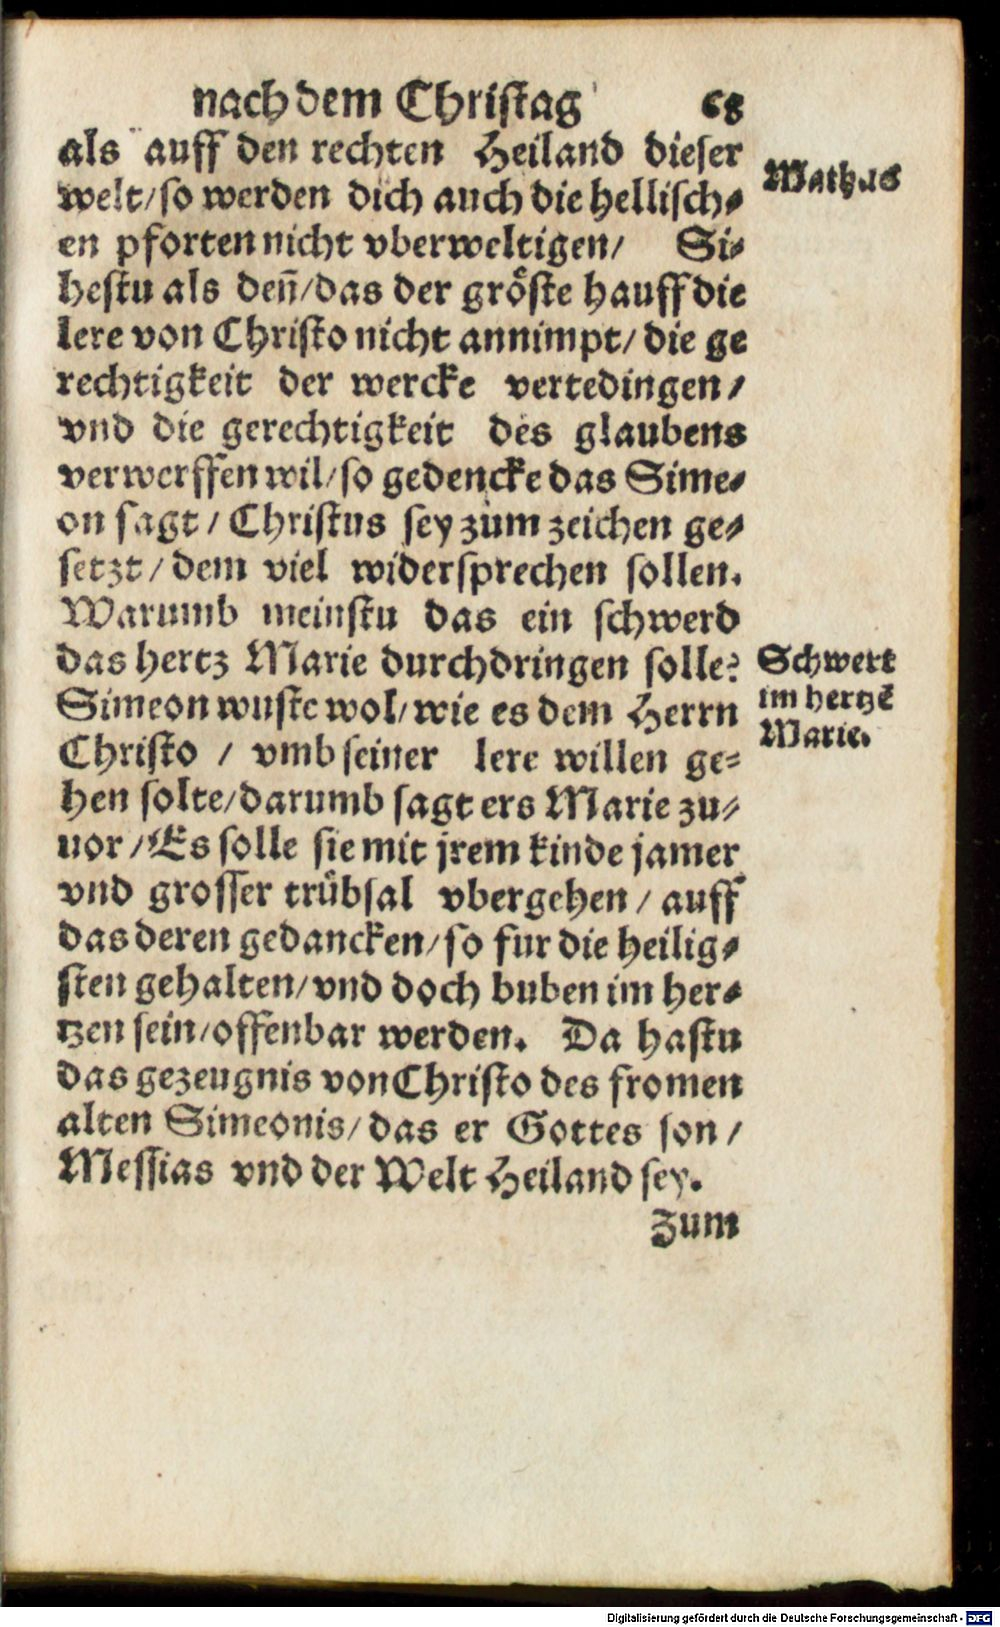 nach dem Christag 68
als auff den rechten Heiland dieser
welt/so werden dich auch die hellisch⸗
en pforten nicht vberweltigen/ Si⸗
hestu als deñ/das der gröste hauff die
lere von Christo nicht annimpt/die ge
rechtigkeit der wercke vertedingen/
vnd die gerechtigkeit des glaubens
verwerffen wil/so gedencke das Sime⸗
on sagt/Christus sey zum zeichen ge⸗
setzt/dem viel widersprechen sollen.
Warumb meinstu das ein schwerd
das hertz Marie durchdringen solle?
Simeon wuste wol/wie es dem Herrn
Christo / vmb seiner lere willen ge⸗
hen solte/darumb sagt ers Marie zu⸗
uor/Es solle sie mit jrem kinde jamer
vnd grosser trübsal vbergehen/auff
das deren gedancken/so fur die heilig⸗
sten gehalten/vnd doch buben im her⸗
tzen sein/offenbar werden. Da hastu
das gezeugnis von Christo des fromen
alten Simeonis/das er Gottes son/
Messias vnd der Welt Heiland sey.
Zum
Schwert
im hertzē
Marie.
Digitalisierung gefördert durch die Deutsche Forschungsgemeinschaft - DFG